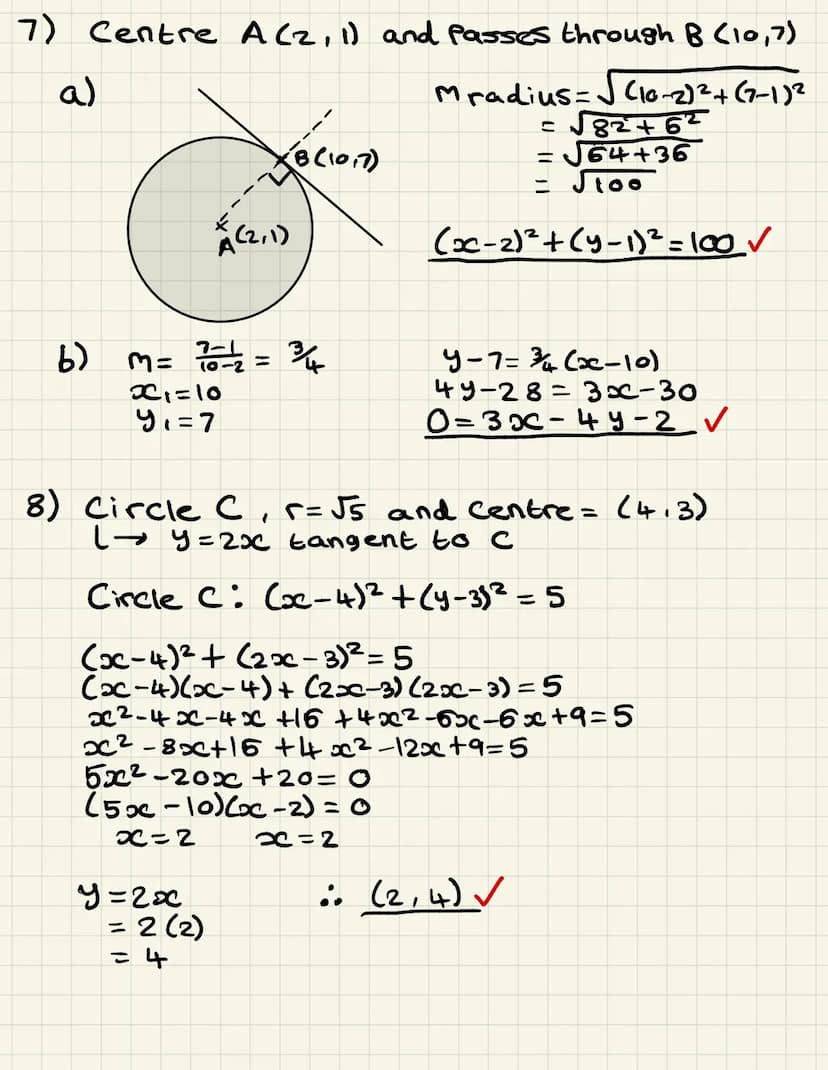 7) Centre A(2,1) and Passes through B(10,7)
a)
B(10,7)
A(2,1)
Mradius=√(10-2)²+(7-1)²
=√82+6²
=√64+36
=√100
(x-2)²+(y-1)²=100 ✓
b) m= 7-1/10-2 = 3/4
x₁=10
y₁=7
y-7=3/4(x-10)
4y-28=3x-30
0=3x-4y-2 ✓
8) Circle C, r=√5 and Centre=(4,3)
l→ y=2x tangent to C
Circle C: (x-4)²+(y-3)²=5
(x-4)²+(2x-3)²=5
(x-4)(x-4)+(2x-3)(2x-3)=5
x²-4x-4x+16+4x²-6x-6x+9=5
x²-8x+16+4x²-12x+9=5
5x²-20x+20=0
(5x-10)(x-2)=0
x=2 x=2
y=2x
=2(2)
=4
∴ (2,4) ✓